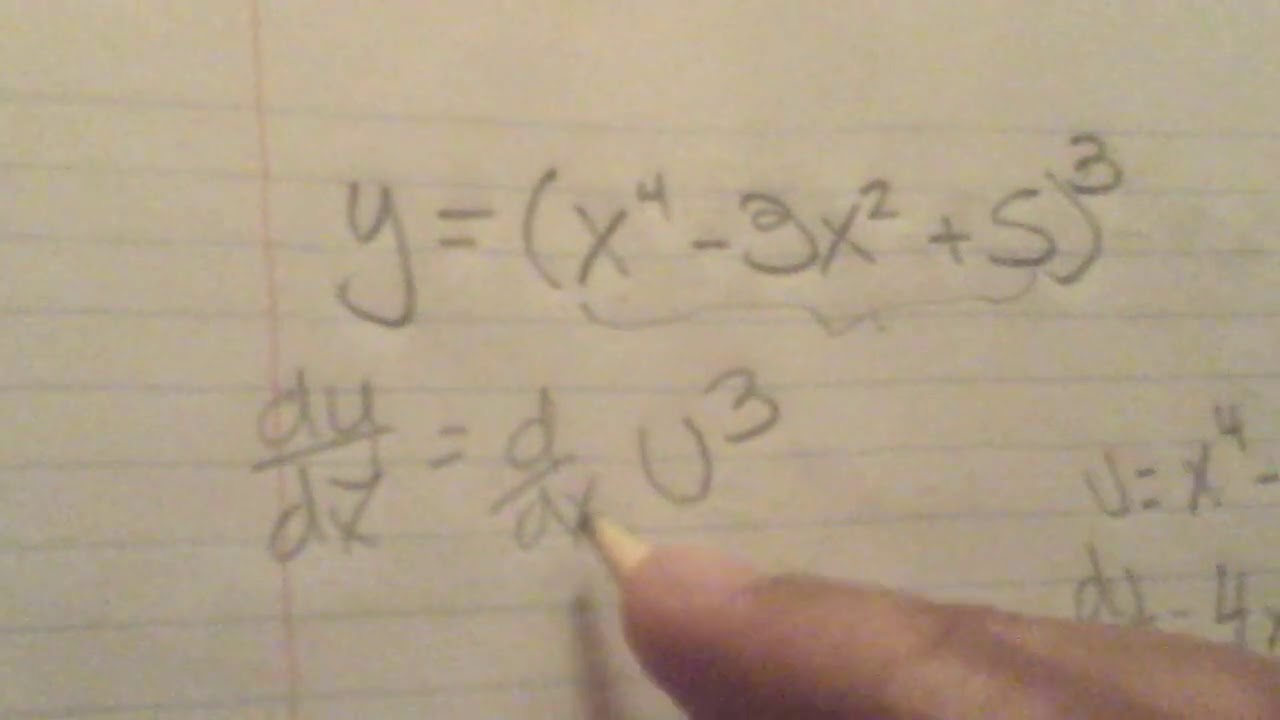 y = (x⁴ - 3x² + 5)³
dy/dx = d/dx U³
U = x⁴ -
du - 4x